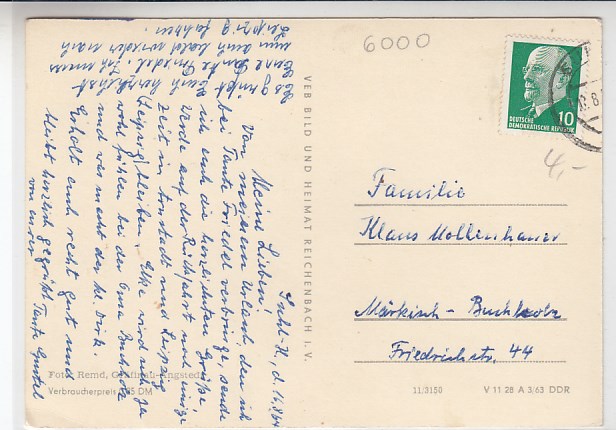 Suhl-H., d. 1.6.64
Meine Lieben!
Von meinem Urlaub den ich
bei Tante Friedel verbringe, sende
ich euch die herzlichsten Grüße.
Werde auf der Rückfahrt noch einige
Zeit in Arnstadt und Leipzig
bleiben. Elke wird sich ja
wohl fühlen bei der Oma Buchholz
und was macht der kl. Dirk.
Erholt euch recht gut und
bleibt herzlich gegrüßt Tante Gustel
von eurer
Es grüßt Euch herzlichst
Eure Tante Friedel. Ich muss
nun auch bald wieder nach
Leipzig fahren.
Foto: Remd, Gräfinau-Angstedt
Verbraucherpreis DM
VEB BILD UND HEIMAT REICHENBACH I. V.
6000
DEUTSCHE
DEMOKRATISCHE REPUBLIK
10
4,-
Familie
Klaus Mollenhauer
Märkisch-Buchholz
Friedrichstr. 44
11/3150
V 11 28 A 3/63 DDR